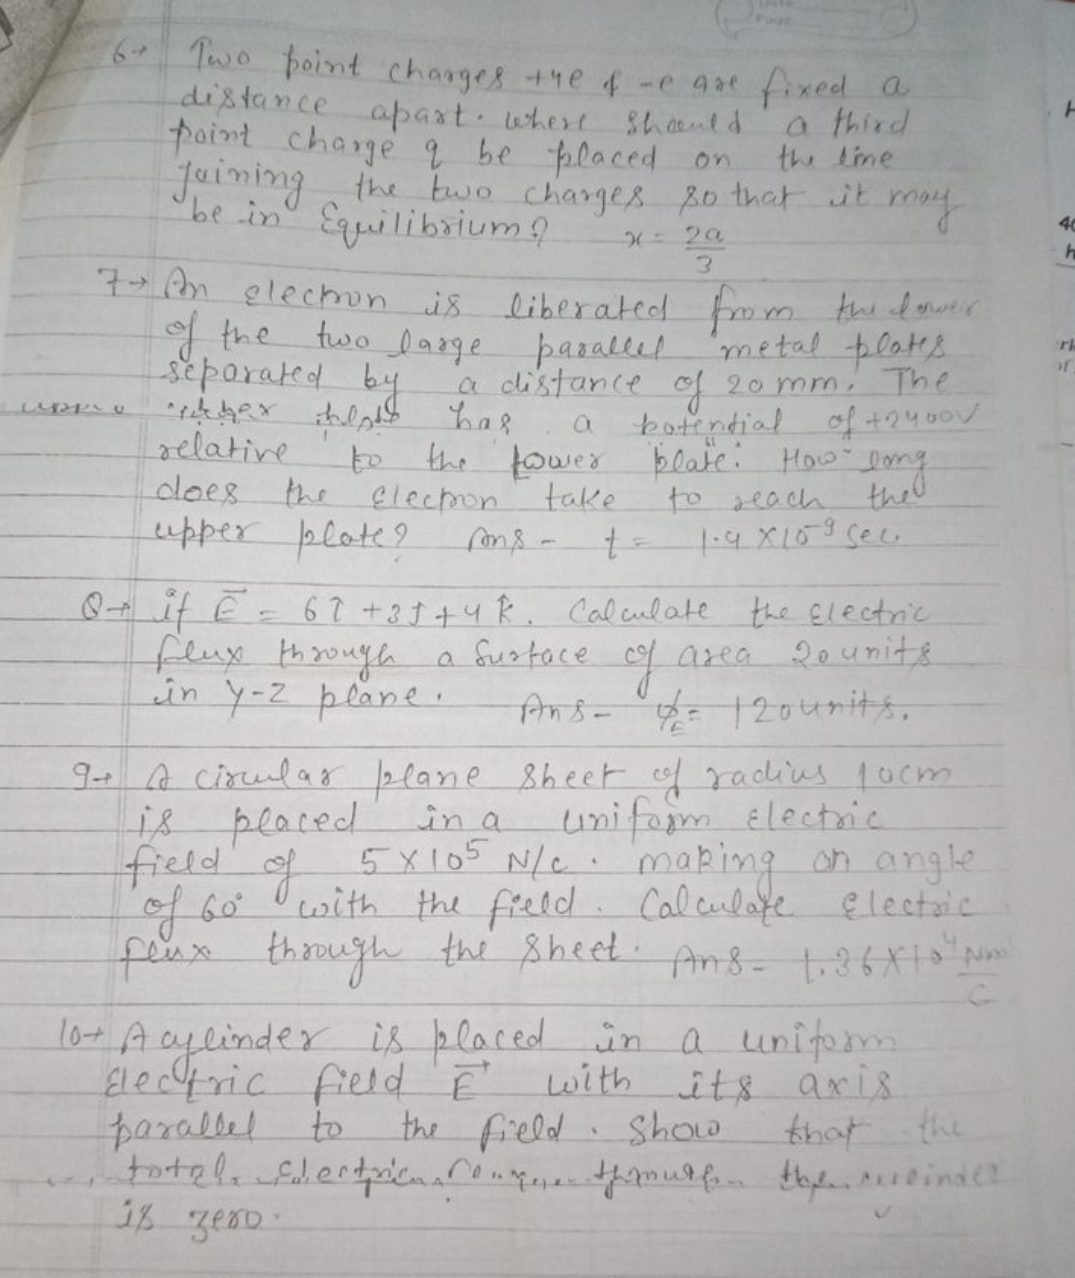 6→ Two point charges +4e & -e are fixed a
distance apart. Where should a third
point charge q be placed on the line
joining the two charges so that it may
be in Equilibrium? x = 2a/3
7→ An electron is liberated from the lower
of the two large parallel metal plates
separated by a distance of 20 mm. The
upper has a potential of +2400V
relative to the lower plate. How long
does the electron take to reach the
upper plate? Ans - t = 1.4 X 10⁻⁹ sec
Q→ if E⃗ = 6î + 3ĵ + 4k̂. Calculate the electric
flux through a surface of area 20 units
in Y-Z plane. Ans - ϕE = 120 units.
9→ A circular plane sheet of radius 10cm
is placed in a uniform electric
field of 5 X 10⁵ N/C. making an angle
of 60° with the field. Calculate electric
flux through the sheet. Ans - 1.36 X 10⁴ Nm/C
10→ A cylinder is placed in a uniform
electric field E⃗ with its axis
parallel to the field. Show that the
total Electric through the
is zero.